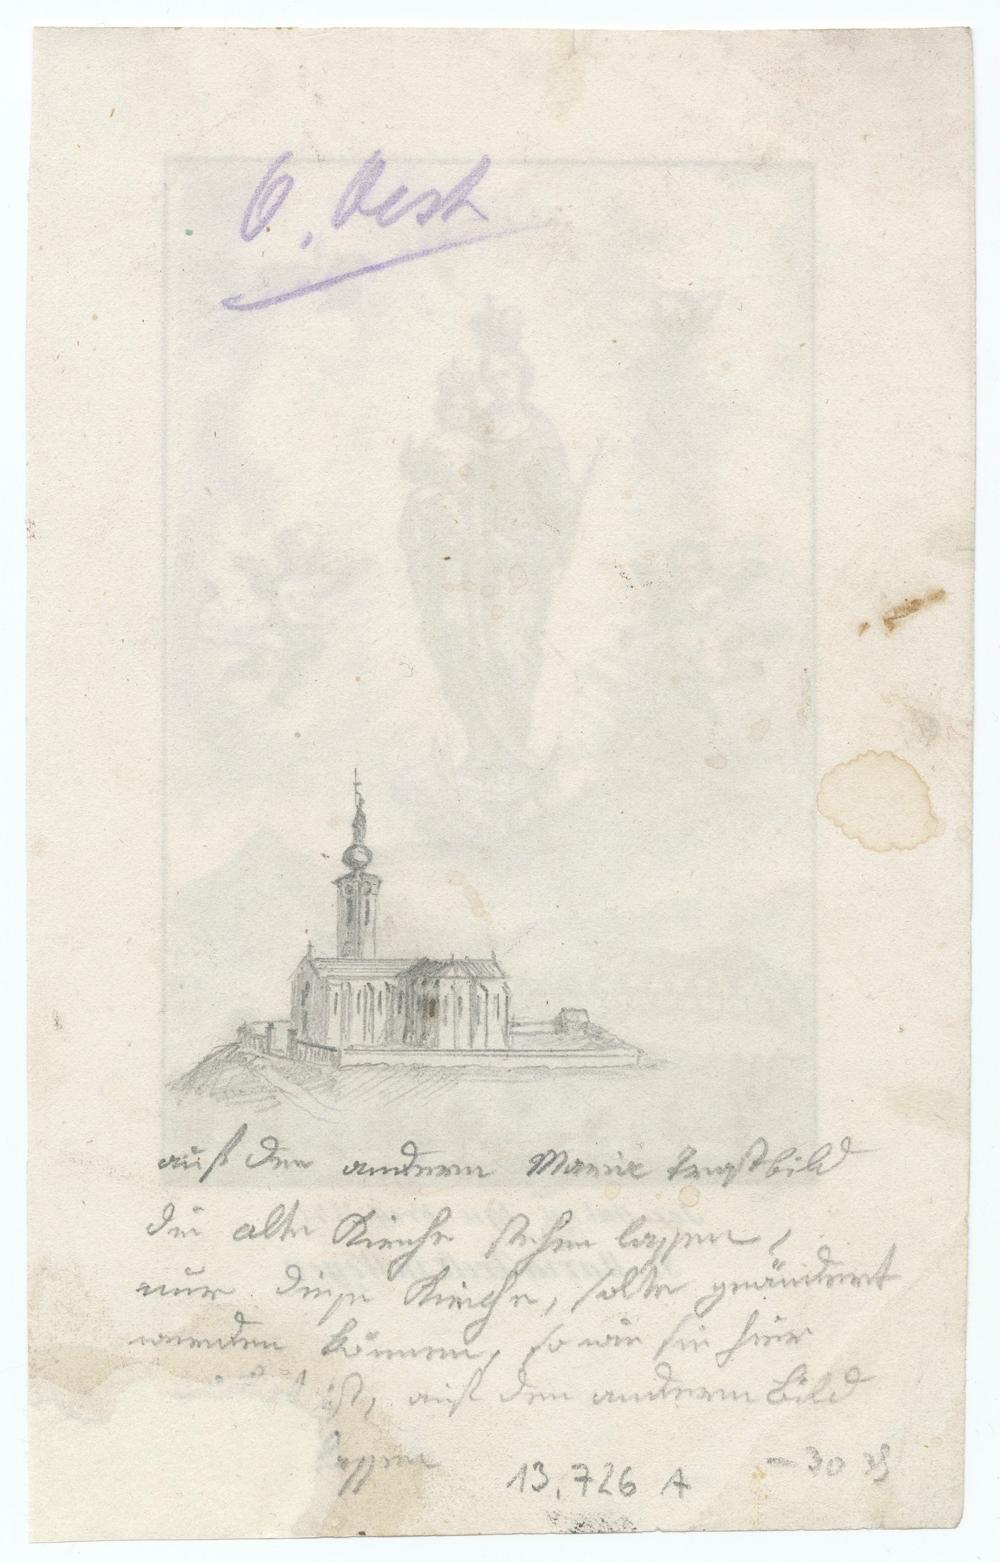 O. Oest
auf den andern Maria Trostbild
die alte Kirche stehen lassen,
nur diese Kirche, solte geändert
werden können, so wie sie hier
ist, auf dem andern Bild
lassen
13,726 A
- 30